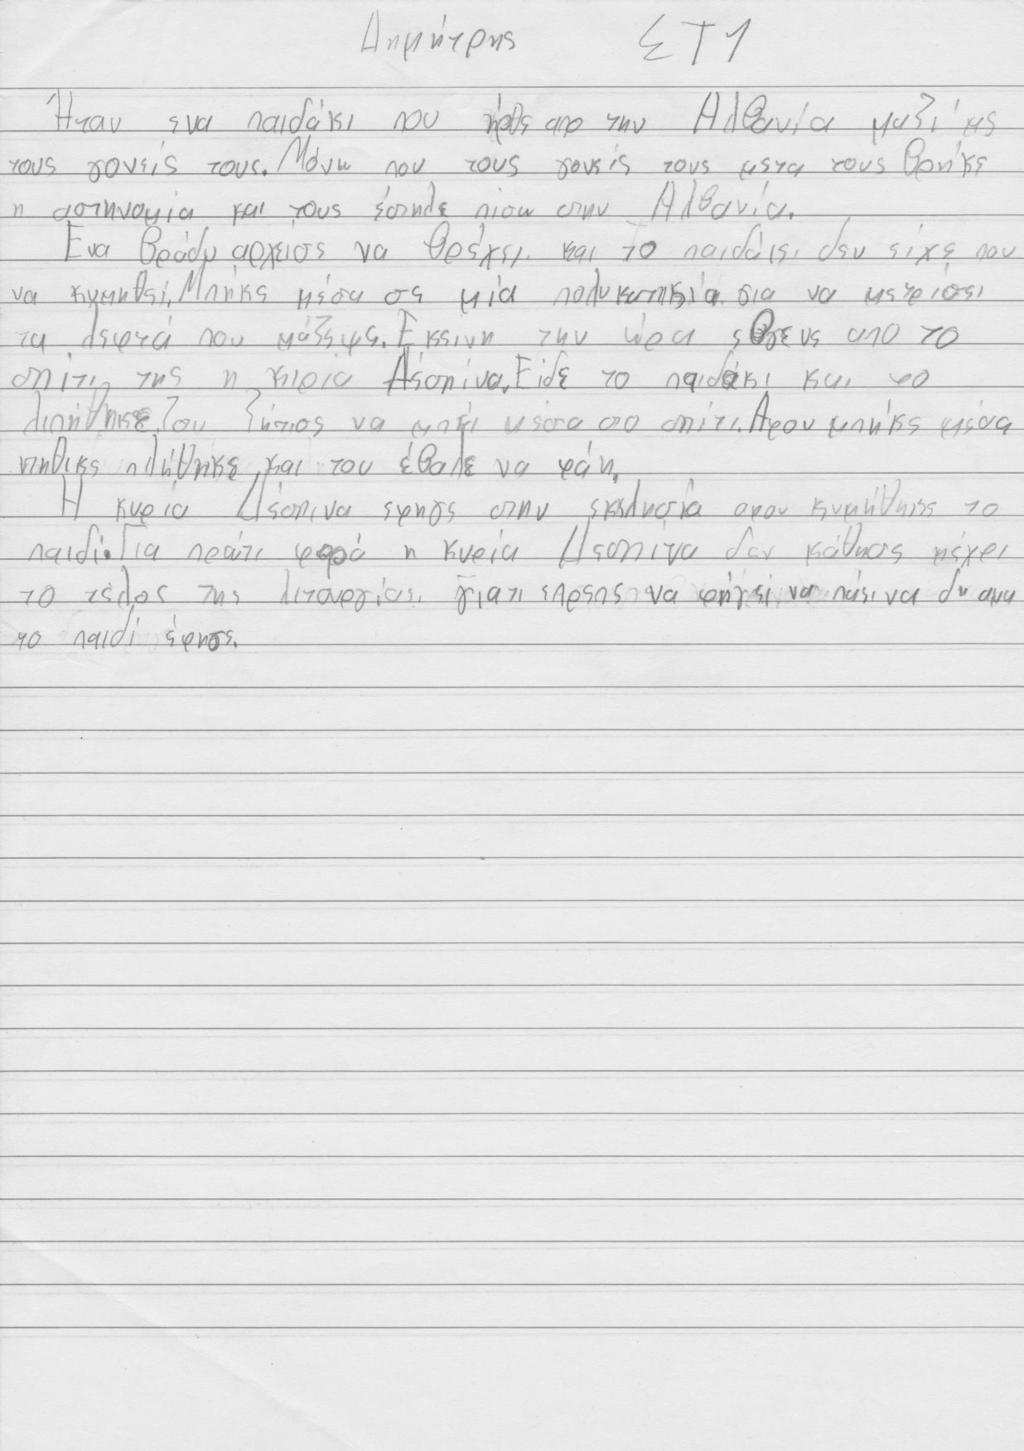 Δημήτρης ΣΤ1
Ήταν ενα παιδάκι που ήρθε απο την Αλβανία μαζί με
τους γονείς τους. Μόνω που τους γονείς τους μετα τους βρήκε
η αστηνομία και τους έστηλε πισω στην Αλβανία.
Ενα βράδυ αρχεισε να βρέχει και το παιδάκι δεν είχε που
να κημηθεί. Μπήκε μέσα σε μία πολυκατηκία για να μετρισει
τα λεφτά που μάζεψε. Εκεινη την ώρα εβγενε απο το
σπίτι της η κιρία Δέσπινα. Είδε το παιδάκι και το
λιπήθηκε. Του ζήτισε να μπεί μέσα στο σπίτι. Αφου μπήκε μέσα
πλήθηκε και του έβαλε να φάη.
Η κυρία Δέσπινα εφηγε στην εκκλησία αφου κημήθηκε το
παιδί. Για πρώτι φορά η κυρία Δεσπινα δεν κάθησε μέχρι
το τέλος της λιτουργίας γιατι επρεπε να φήγει να πάει να δη αμα
το παιδί έφηγε.